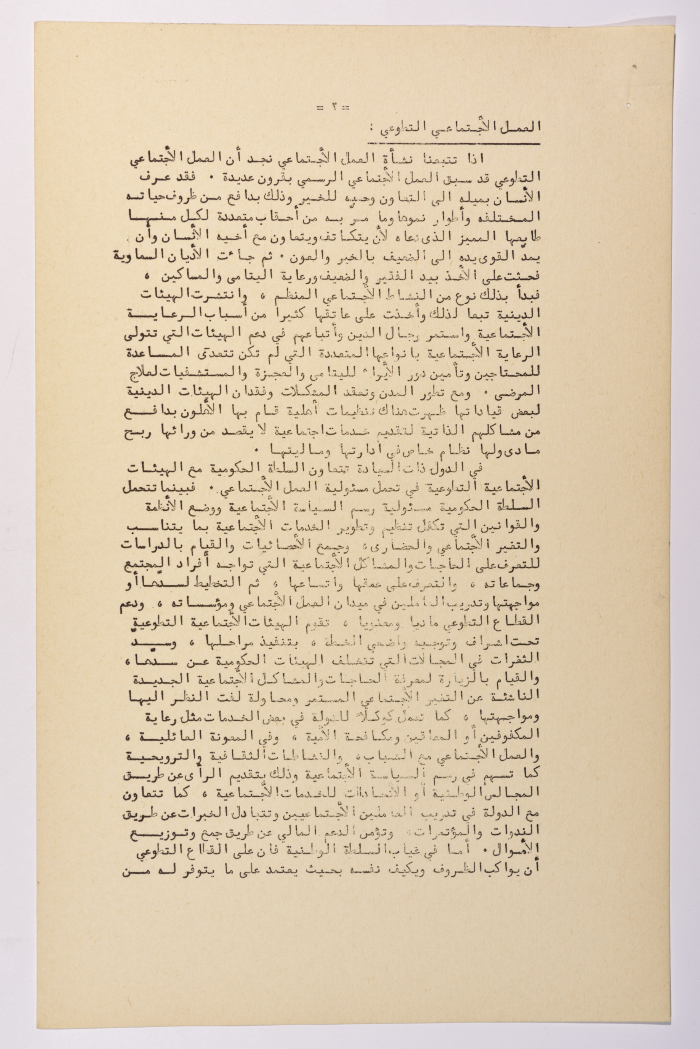 = ٢ =
العمل الأجتماعي التطوعي :
اذا تتبعنا نشأة العمل الأجتماعي نجد أن العمل الأجتماعي
التطوعي قد سبق العمل الأجتماعي الرسمي بقرون عديدة . فقد عرف
الأنسان بميله الى التعاون وحبه للخير وذلك بدافع من ظروف حياته
المختلفه وأطوار نموها وما مر به من أحقاب متعددة لكل منها
طابعها المميز الذى دعاه لأن يتكاتف ويتعاون مع أخيه الأنسان وأن
يمد القوى يده الى الضعيف بالخير والعون . ثم جاءت الأديان السماوية
فحثت على الأخذ بيد الفقير والضعيف ورعاية اليتامى والمساكين ،
فبدأ بذلك نوع من النشاط الأجتماعي المنظم ، وانتشرت الهيئات
الدينية تبعا لذلك وأخذت على عاتقها كثيرا من أسباب الرعاية
الأجتماعية واستمر رجال الدين وأتباعهم في دعم الهيئات التي تتولى
الرعاية الأجتماعية بانواعها المتعددة التي لم تكن تتعدى المساعدة
للمحتاجين وتأمين دور الأيواء لليتامى والعجزة والمستشفيات لعلاج
المرضى . ومع تطور المدن وتعقد المشكلات وفقدان الهيئات الدينية
لبعض قياداتها ظهرت هناك تنظيمات أهلية قام بها الأهلون بدافع
من مشاكلهم الذاتية لتقديم خدمات اجتماعية لا يقصد من ورائها ربح
مادى ولها نظام خاص في أدارتها وماليتها .
في الدول ذات السيادة تتعاون السلطة الحكومية مع الهيئات
الأجتماعية التطوعية في تحمل مسئولية العمل الأجتماعي . فبينما تتحمل
السلطة الحكومية مسئولية رسم السياسة الأجتماعية ووضع الأنظمة
والقوانين التي تكفل تنظيم وتطوير الخدمات الأجتماعية بما يتناسب
والتغير الأجتماعي والحضارى، وجمع الأحصائيات والقيام بالدراسات
للتعرف على الحاجات والمشاكل الأجتماعية التي تواجه أفراد المجتمع
وجماعاته ، والتعرف على عمقها واتساعها ، ثم التخطيط لسدها أو
مواجهتها وتدريب العاملين في ميدان العمل الأجتماعي ومؤسساته ، ودعم
القطاع التطوعي ماديا ومعنويا ، تقوم الهيئات الأجتماعية التطوعية
تحت اشراف وتوجيه واضعي الخطة ، بتنفيذ مراحلها ، وسد
الثغرات في المجالات التي تتخلف الهيئات الحكومية عن سدها ،
والقيام بالزيارة لمعرفة الحاجات والمشاكل الأجتماعية الجديدة
الناشئة عن التغير الأجتماعي المستمر ومحاولة لفت النظر اليها
ومواجهتها ، كما تعمل كوكلاء للدولة في بعض الخدمات مثل رعاية
المكفوفين أو المعاقين ومكافحة الأمية ، وفي المعونة العائلية ،
والعمل الأجتماعي مع الشباب ، والنشاطات الثقافية والترويحية
كما تسهم في رسم السياسة الأجتماعية وذلك بتقديم الرأى عن طريق
المجالس الوطنية أو الاتحادات للخدمات الأجتماعية ، كما تتعاون
مع الدولة في تدريب العاملين الأجتماعيين وتتبادل الخبرات عن طريق
الندوات والمؤتمرات، وتؤمن الدعم المالي عن طريق جمع وتوزيع
الأموال . أما في غياب السلطة الوطنية فان على القطاع التطوعي
أن يواكب الظروف ويكيف نفسه بحيث يعتمد على ما يتوفر له من